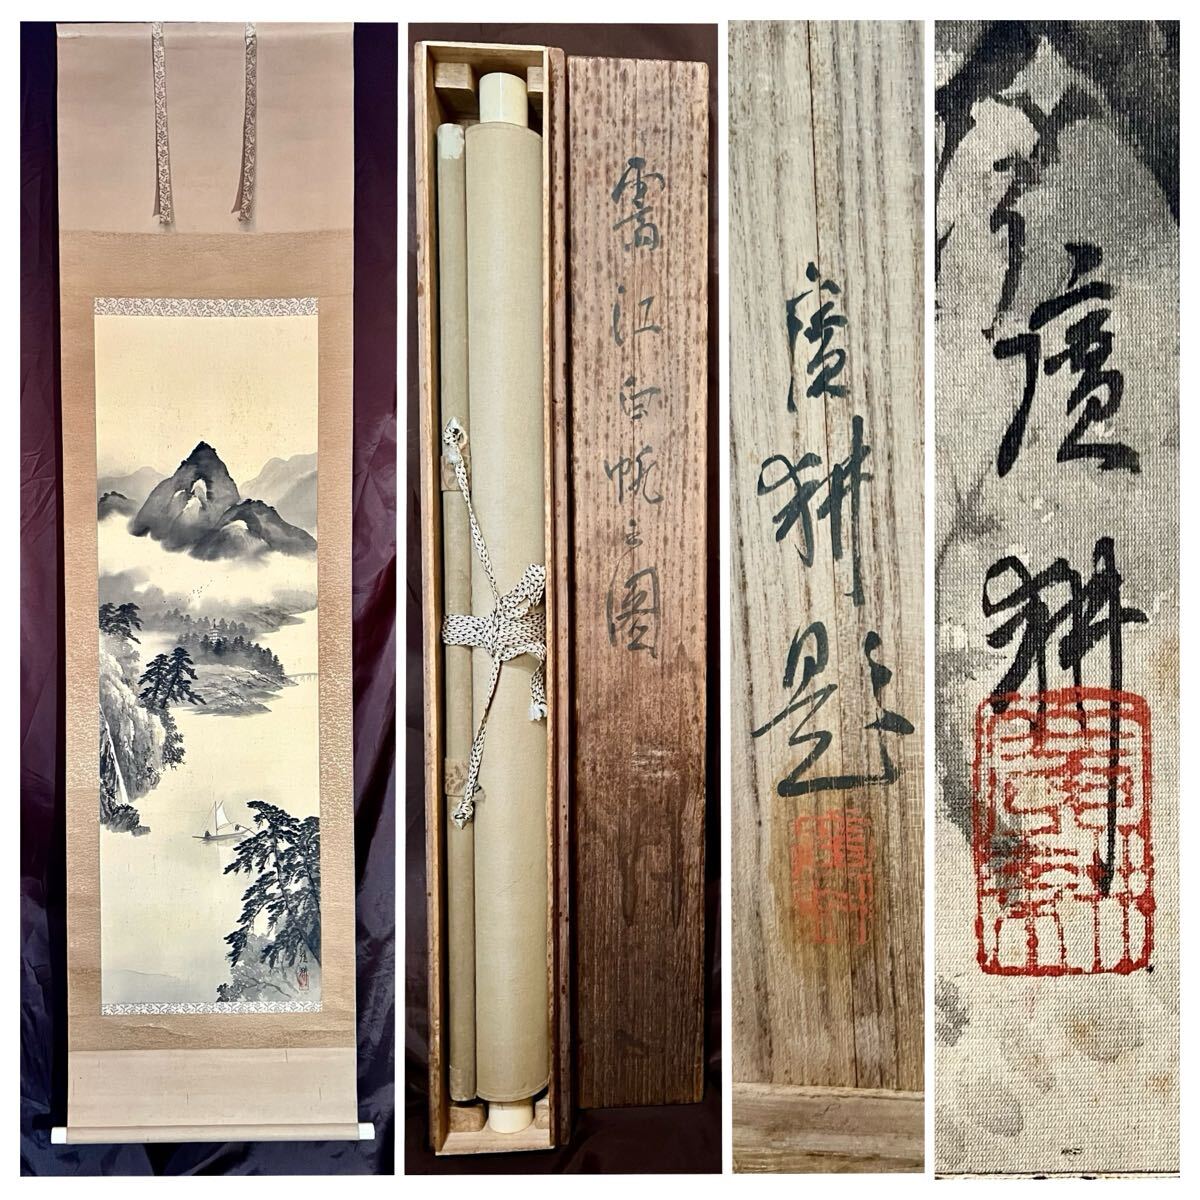 霽江白帆之圖
廣耕題
廣耕